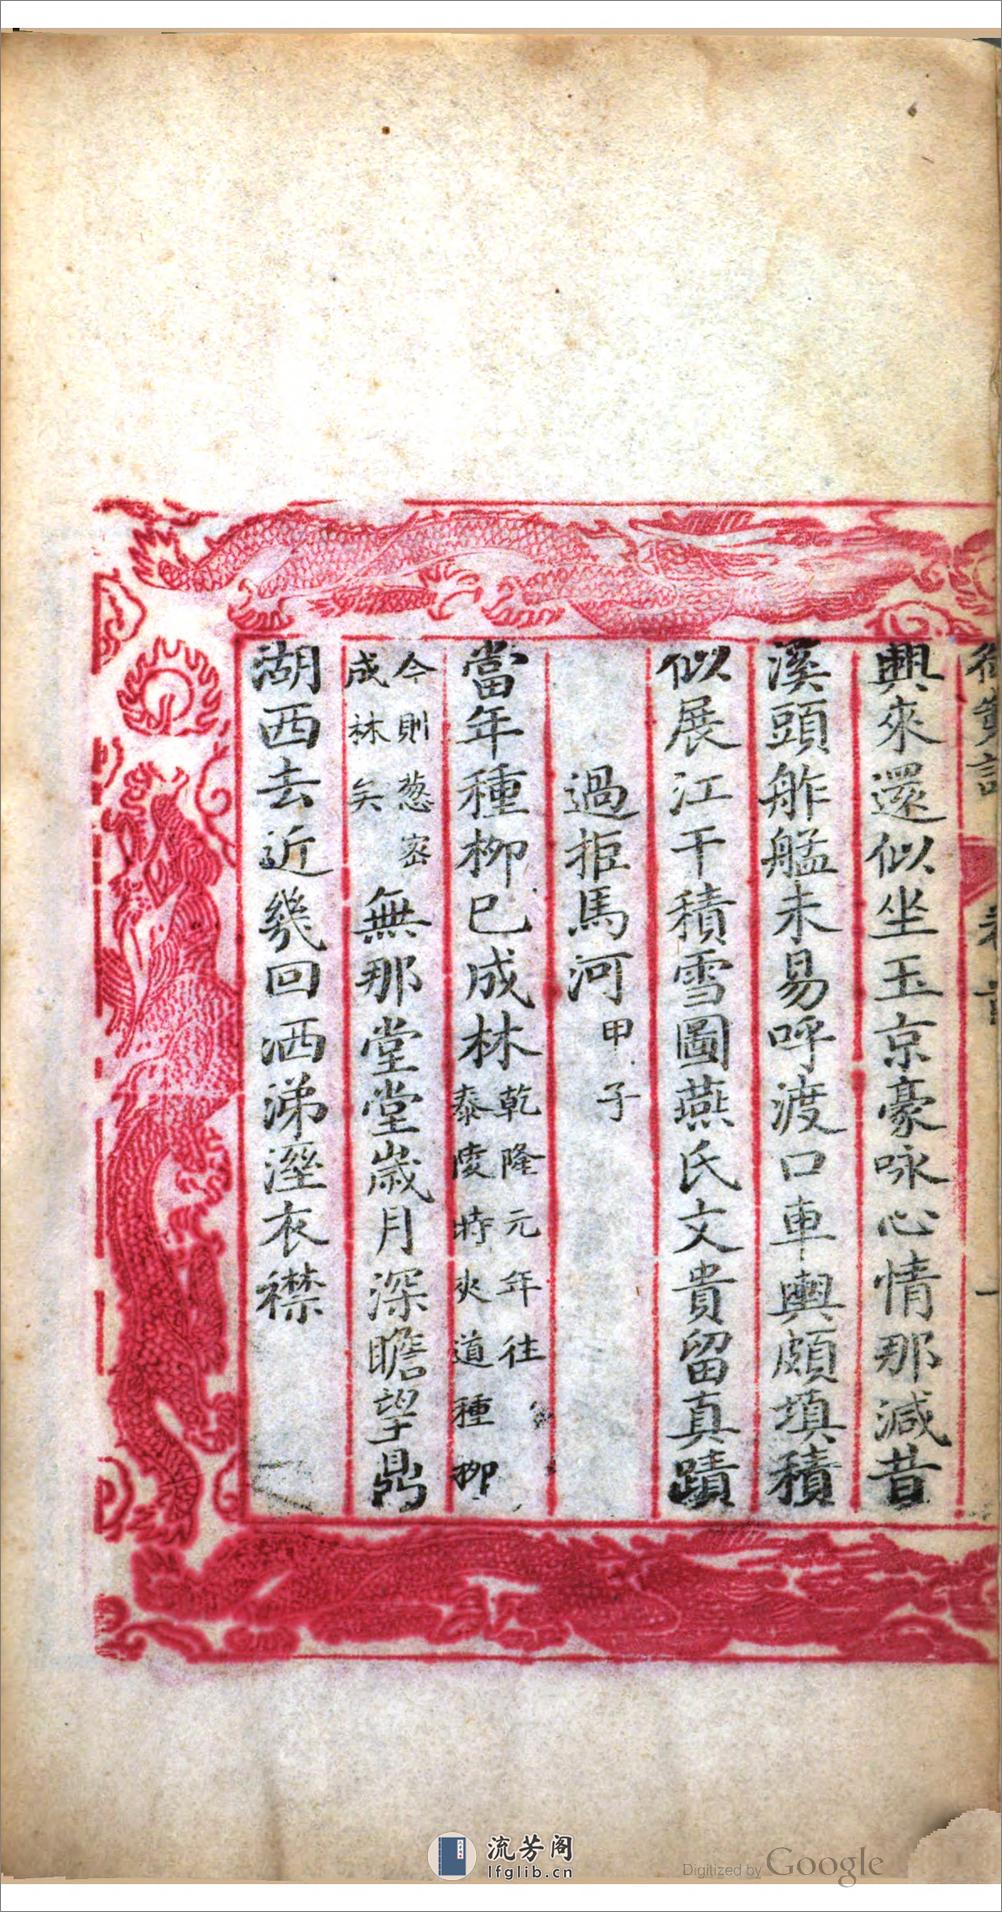 興來還似坐玉京豪咏心情那減昔
溪頭舴艋未易呼渡口車輿頗填積
似展江干積雪圖燕氏文貴留真蹟
過拒馬河甲子
當年種柳已成林乾隆元年往泰陵時夾道種柳
今則蔥密成林矣無那堂堂歲月深瞻望鼎
湖西去近幾回洒涕溼衣襟
流芳阁
lfglib.cn
Digitized by Google